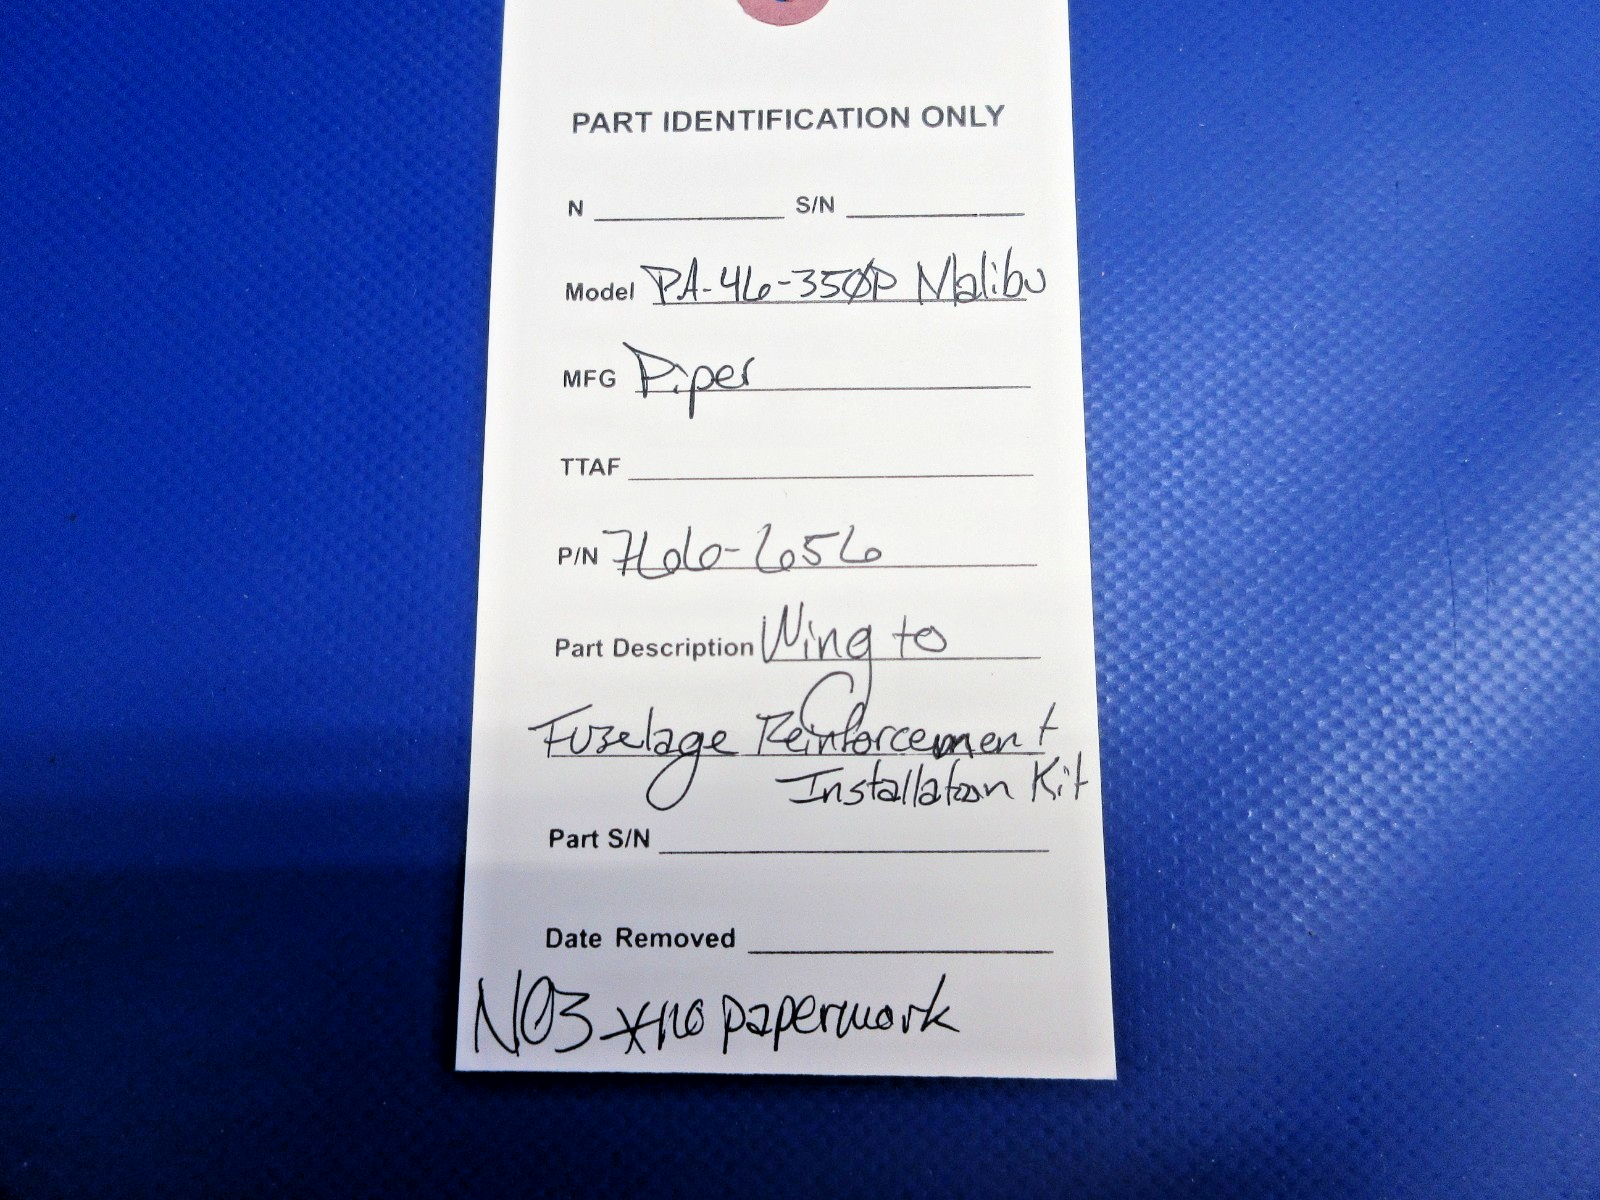 PART IDENTIFICATION ONLY
N S/N
Model PA-46-350P Malibu
MFG Piper
TTAF
P/N 766-656
Part Description Wing to
Fuzelage Reinforcement
Installation Kit
Part S/N
Date Removed
N03 *no paperwork